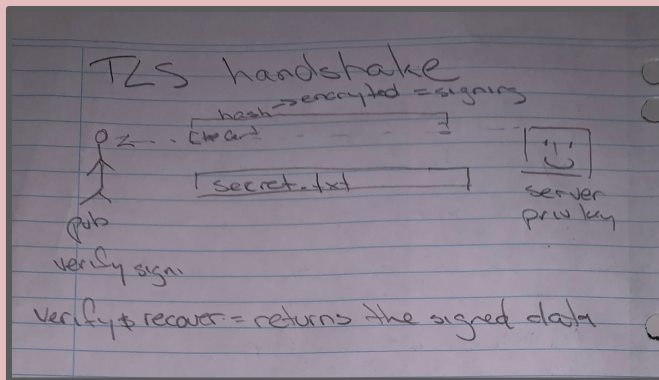 TLS handshake
hash → encrypted = signing
secret.txt
server
priv key
pub
verify sign.
verify & recover = returns the signed data